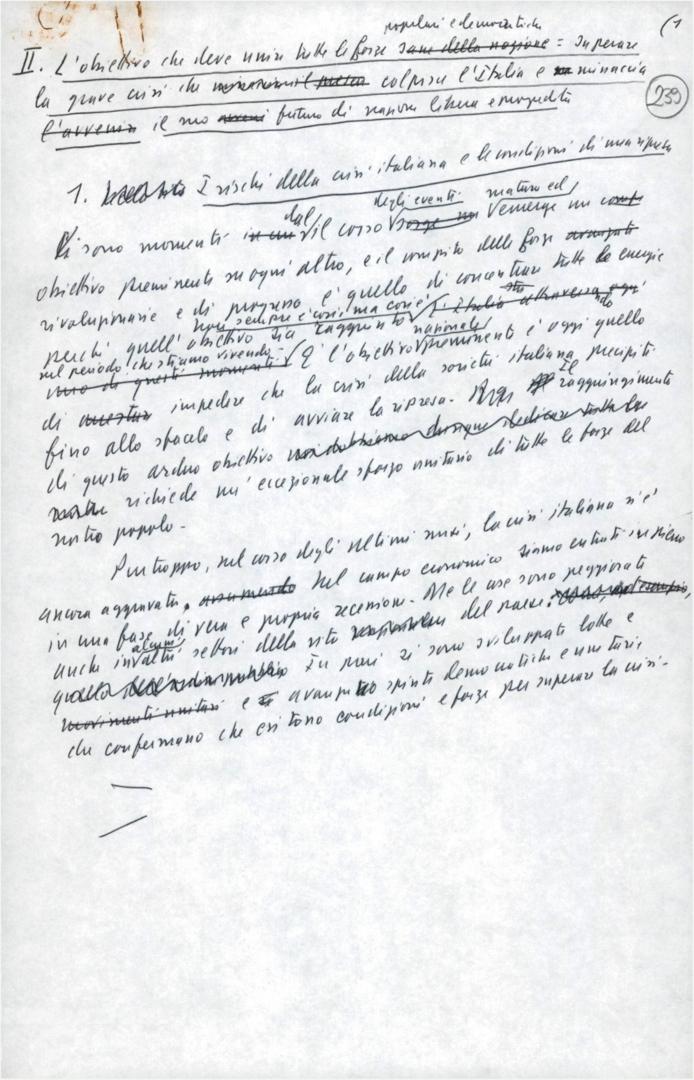 popolari e democratiche
(1
II. L'obiettivo che deve unire tutte le forze sane della nazione = superare
la grave crisi che colpisce l'Italia e minaccia
239
l'avvenire il suo futuro di nazione libera e
1. I rischi della crisi italiana e le condizioni di una ripresa
dal degli eventi matura ed
Vi sono momenti in cui il corso emerge un
obiettivo preminente su ogni altro, e il compito delle forze avanzate
rivoluzionarie e di progresso è quello di concentrare tutte le energie
perché quell'obiettivo sia raggiunto
non sempre è così, ma così è
nel periodo che stiamo vivendo nazionale
uno di questi momenti. E l'obiettivo preminente è oggi quello
di impedire che la crisi della società italiana precipiti
fino allo sfacelo e di avviare la ripresa. Il raggiungimento
di questo arduo obiettivo
richiede un'eccezionale sforzo unitario di tutte le forze del
nostro popolo.
Purtroppo, nel corso degli ultimi mesi, la crisi italiana si è
ancora aggravata. Nel campo economico siamo entrati in pieno
in una fase di vera e propria recessione. Ma le cose sono peggiorate
anche in alcuni altri settori della vita del paese.
In pari si sono sviluppate lotte e
movimenti unitari e avanzate spinte democratiche e unitarie
che confermano che esistono condizioni e forze per superare la crisi.